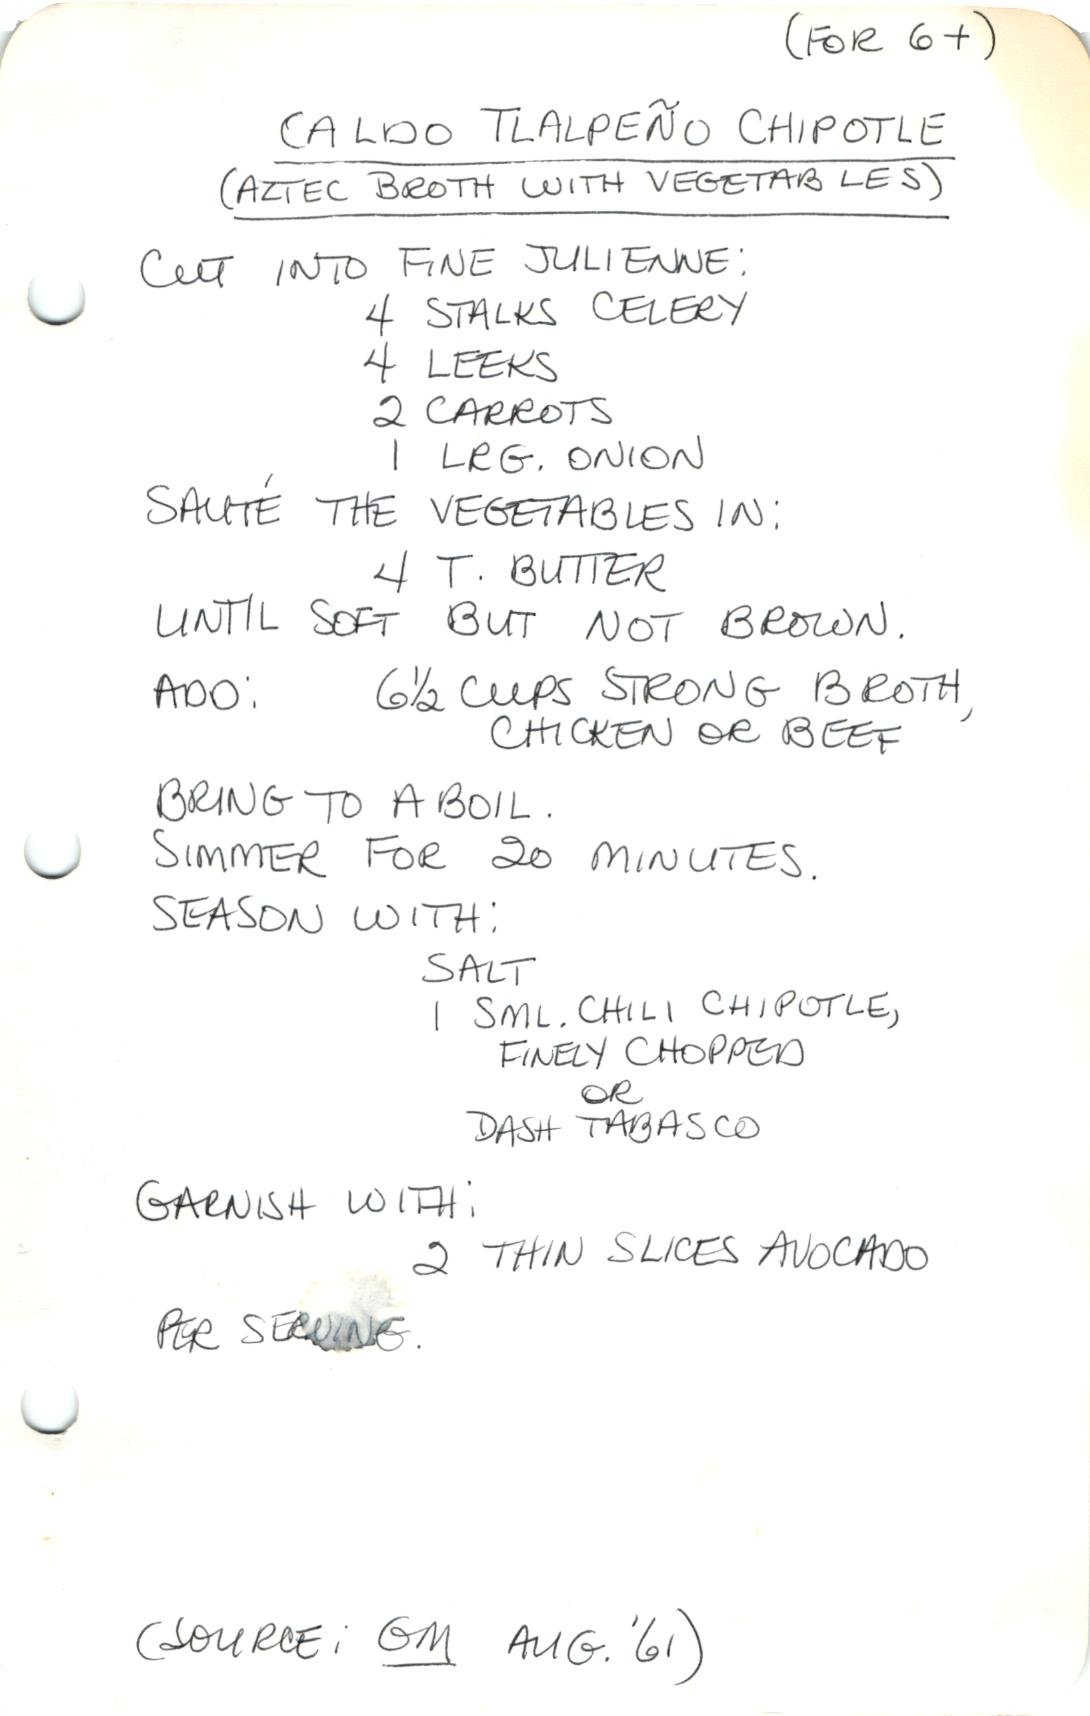 (FOR 6+)
CALDO TLALPEÑO CHIPOTLE
(AZTEC BROTH WITH VEGETABLES)
CUT INTO FINE JULIENNE:
4 STALKS CELERY
4 LEEKS
2 CARROTS
1 LRG. ONION
SAUTÉ THE VEGETABLES IN:
4 T. BUTTER
UNTIL SOFT BUT NOT BROWN.
ADD: 6½ CUPS STRONG BROTH,
CHICKEN OR BEEF
BRING TO A BOIL.
SIMMER FOR 20 MINUTES.
SEASON WITH:
SALT
1 SML. CHILI CHIPOTLE,
FINELY CHOPPED
OR
DASH TABASCO
GARNISH WITH:
2 THIN SLICES AVOCADO
PER SERVING.
(SOURCE: GM AUG. '61)